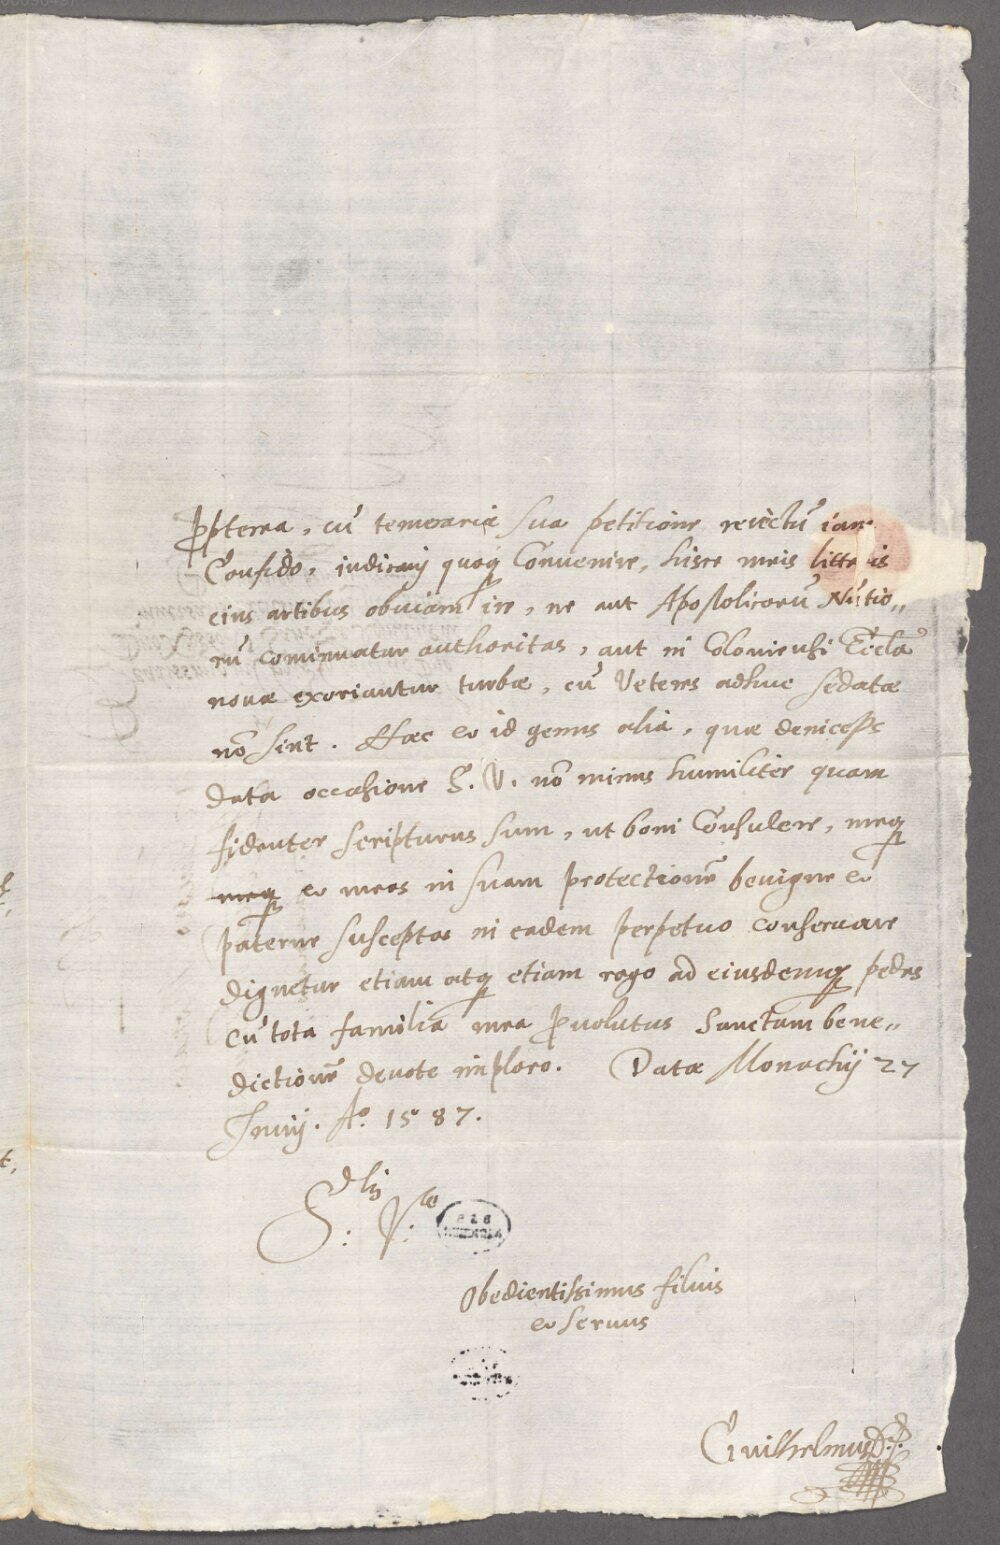 ꝓpterea, cũ temeraria sua petitione reiectũ iam
Confido, indicarij quoq; Convenire, hisce meis litteris
eius artibus obuiam ire, ne aut Apostolicorũ Nũtio„
rũ cominuatur authoritas, aut in Coloniensi Eccla
novæ exoriantur turbæ, cũ Veteres adhuc sedatæ
nõ sint. Hæc et id genus alia, quæ
data occasione S. V. nõ minus humiliter quam
fidenter scripturus sum, ut boni Consulere, meq;
meq; et meos in suam protectionẽ benigne et
paterne susceptos in eadem perpetuo conservare
dignetur etiam atq; etiam rogo ad eiusdemq; pedes
cũ tota familia mea ꝓvolutus Sanctam bene„
dictionẽ devote imploro. Datæ Monachij 27
Junij. Aº. 1587.
S: V:
Obedientissimus filius
et servus
Guilhelmus